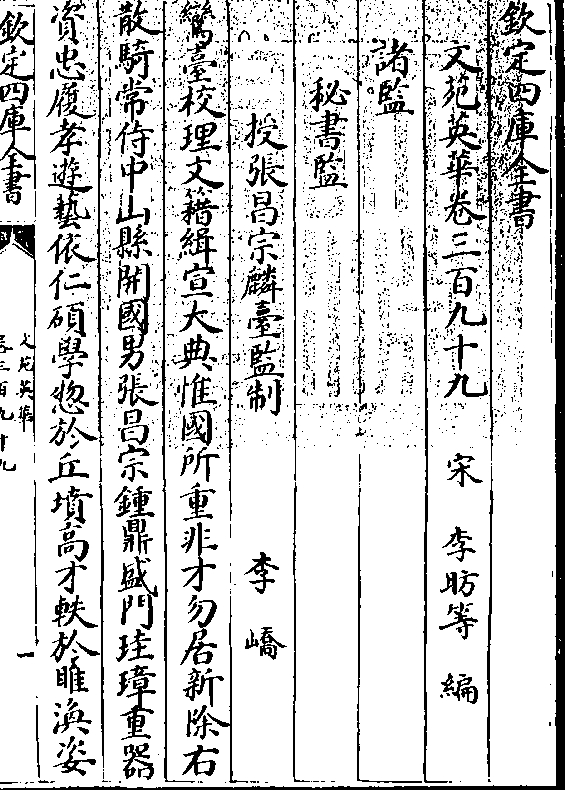 欽定四庫全書
文苑英華卷三百九十九 宋 李昉等 編
諸監
秘書監
授張昌宗麟臺監制 李嶠
鸞臺校理文籍緝宣大典惟國所重非才勿居新除右
散騎常侍中山縣開國男張昌宗鍾鼎盛門珪璋重器
資忠履孝遊藝依仁碩學愸於丘墳高才軼於睢渙姿
欽定四庫全書
文苑英華
卷三百九十九
一